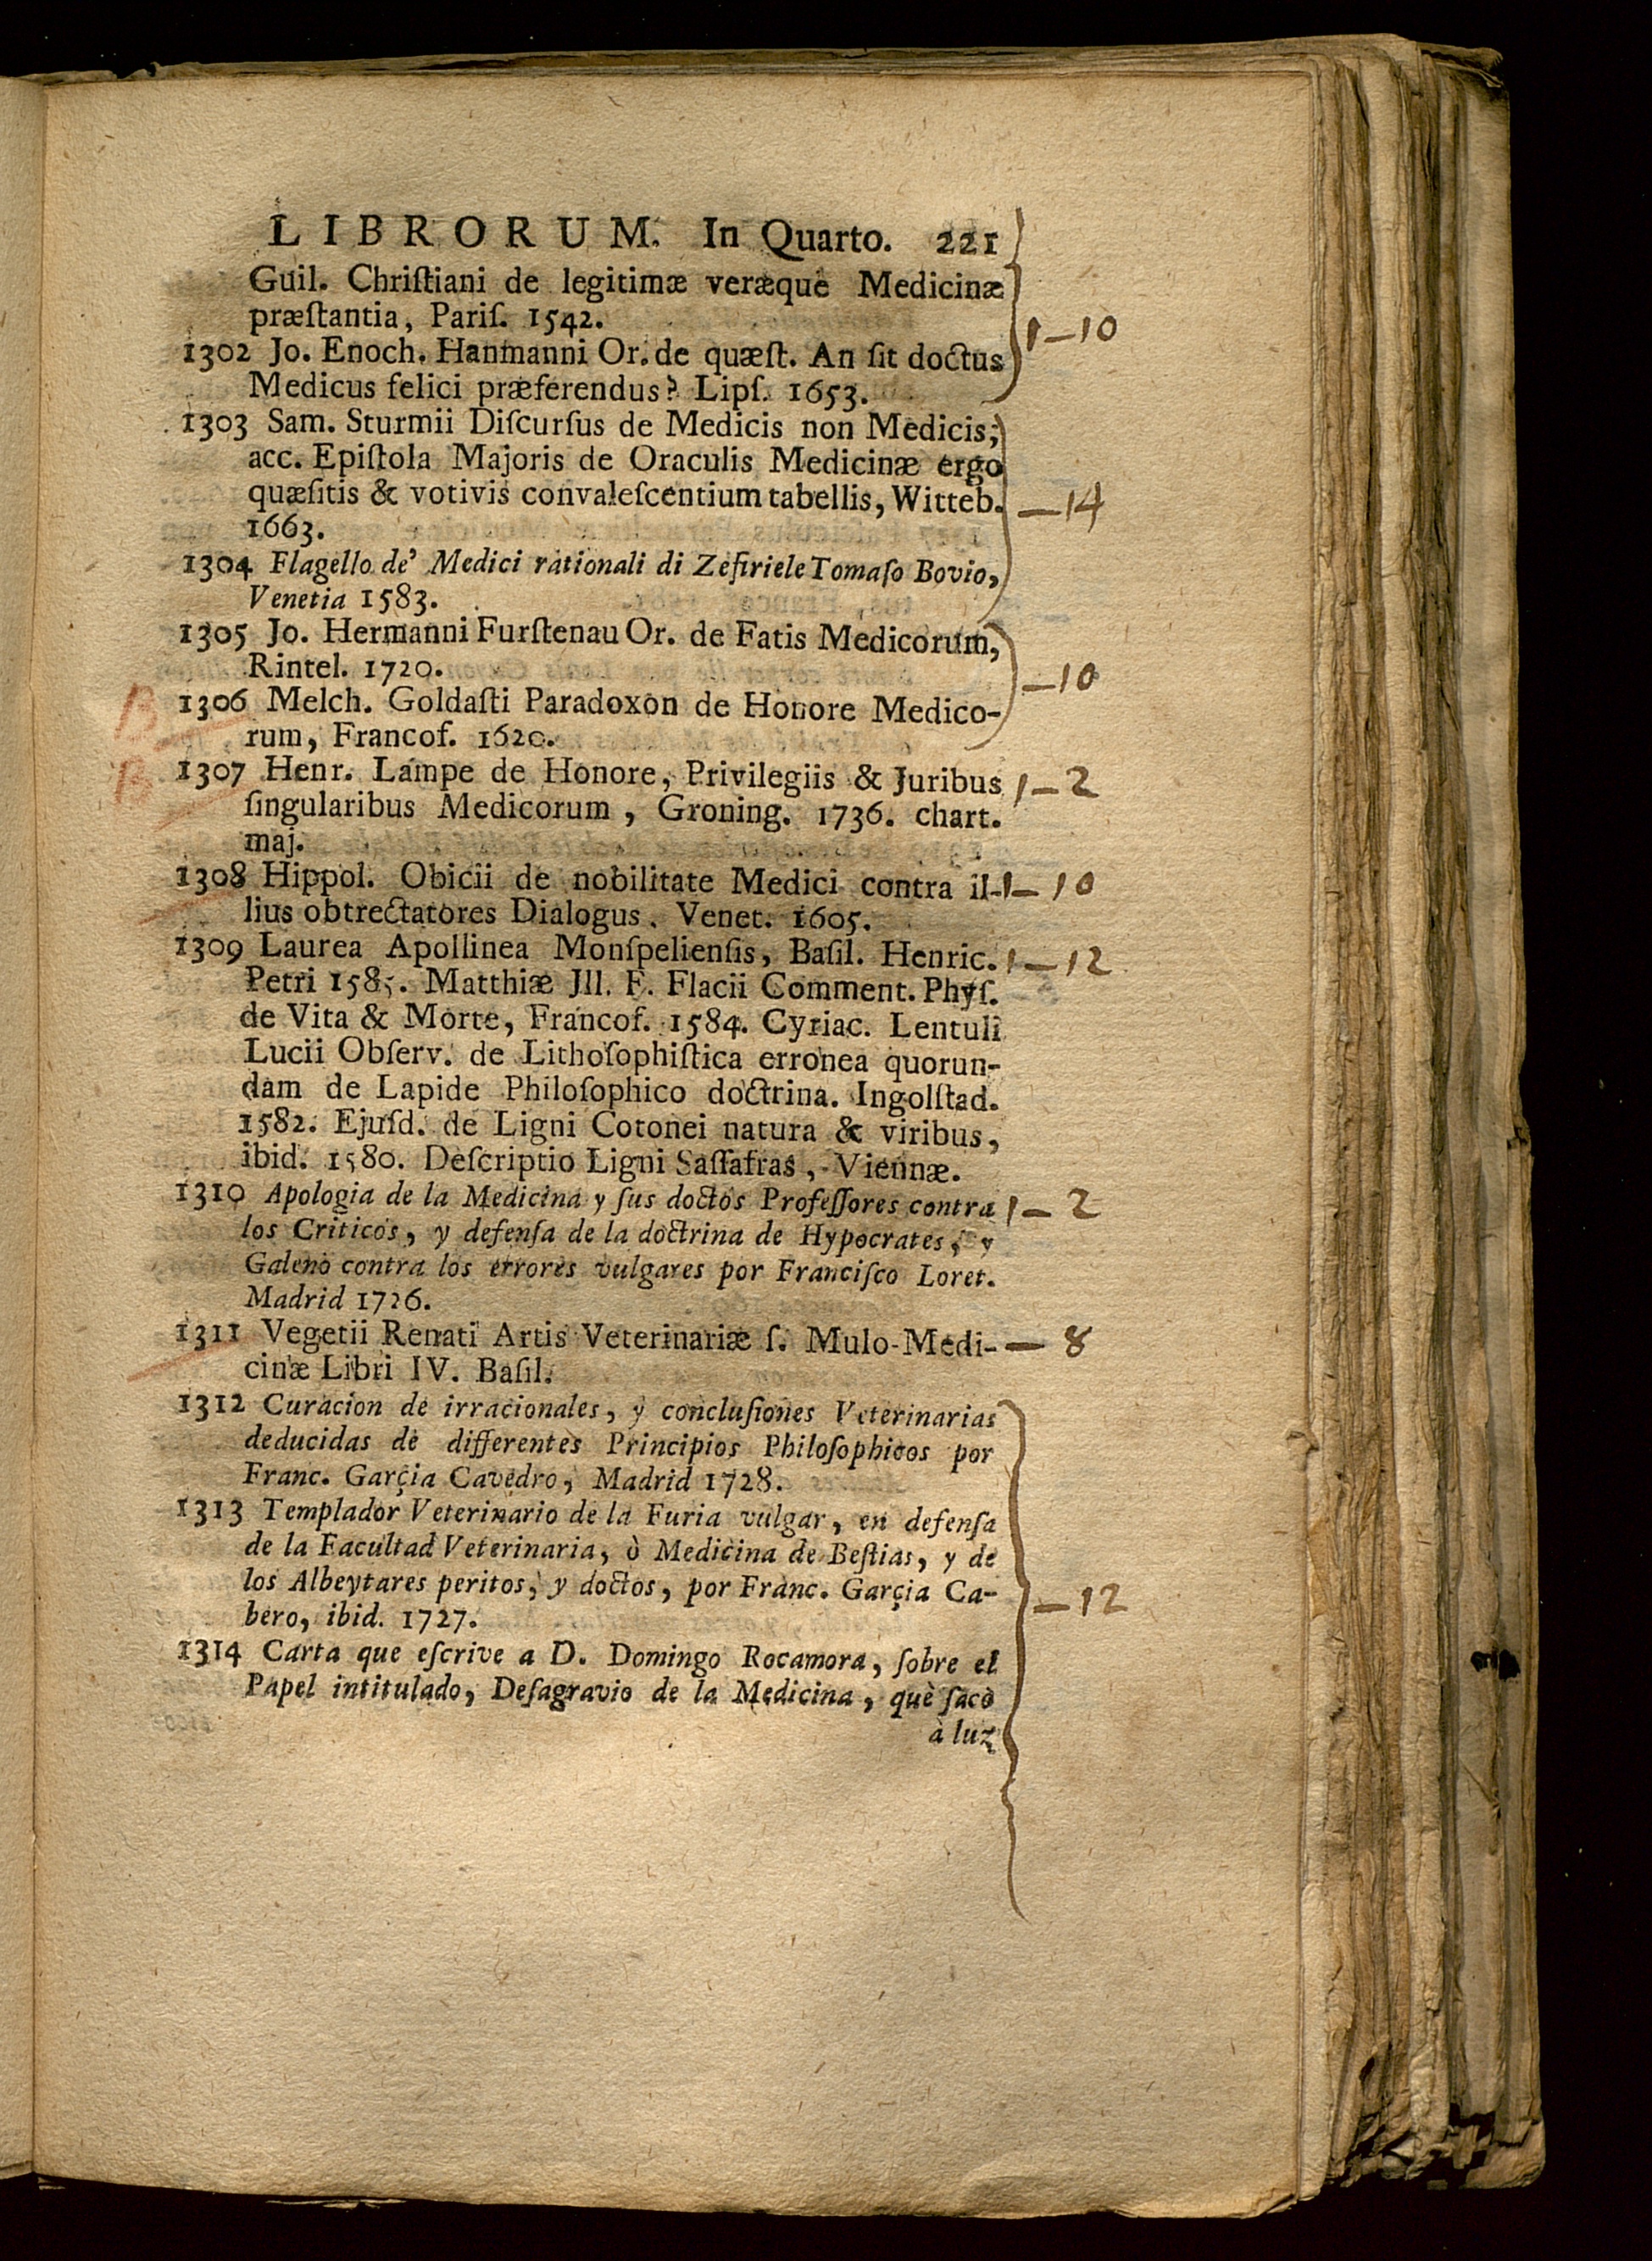 LIBRORUM. In Quarto. 221
Guil. Chriſtiani de legitimæ veræque Medicinæ
præſtantia, Pariſ. 1542. 1–10
1302 Jo. Enoch. Hanmanni Or. de quæſt. An ſit doctus
Medicus felici præferendus? Lipſ. 1653.
1303 Sam. Sturmii Diſcurſus de Medicis non Medicis;
acc. Epiſtola Majoris de Oraculis Medicinæ ergo
quæſitis & votivis convaleſcentium tabellis, Witteb. –14
1663.
1304 Flagello de' Medici rationali di Zefiriele Tomaſo Bovio,
Venetia 1583.
1305 Jo. Hermanni Furſtenau Or. de Fatis Medicorum,
Rintel. 1720. –10
B 1306 Melch. Goldaſti Paradoxon de Honore Medico-
rum, Francof. 1620.
B 1307 Henr. Lampe de Honore, Privilegiis & Juribus 1–2
ſingularibus Medicorum, Groning. 1736. chart.
maj.
1308 Hippol. Obicii de nobilitate Medici contra il- 1–10
lius obtrectatores Dialogus. Venet. 1605.
1309 Laurea Apollinea Monſpelienſis, Baſil. Henric. 1–12
Petri 1585. Matthiæ Jll. F. Flacii Comment. Phyſ.
de Vita & Morte, Francof. 1584. Cyriac. Lentuli
Lucii Obſerv. de Lithoſophiſtica erronea quorun-
dam de Lapide Philoſophico doctrina. Ingolſtad.
1582. Ejuſd. de Ligni Cotonei natura & viribus,
ibid. 1580. Deſcriptio Ligni Saſſafras, Viennæ.
1310 Apologia de la Medicina y ſus doctos Profeſſores contra 1–2
los Criticos, y defenſa de la doctrina de Hypocrates, y
Galeno contra los errores vulgares por Franciſco Loret.
Madrid 1726.
1311 Vegetii Renati Artis Veterinariæ ſ. Mulo-Medi- – 8
cinæ Libri IV. Baſil.
1312 Curacion de irracionales, y concluſiones Veterinarias
deducidas de differentes Principios Philoſophicos por
Franc. Garçia Cavedro, Madrid 1728.
1313 Templador Veterinario de la Furia vulgar, en defenſa
de la Facultad Veterinaria, ò Medicina de Beſtias, y de
los Albeytares peritos, y doctos, por Franc. Garçia Ca- –12
bero, ibid. 1727.
1314 Carta que eſcrive a D. Domingo Rocamora, ſobre el
Papel intitulado, Deſagravio de la Medicina, què ſacò
à luz